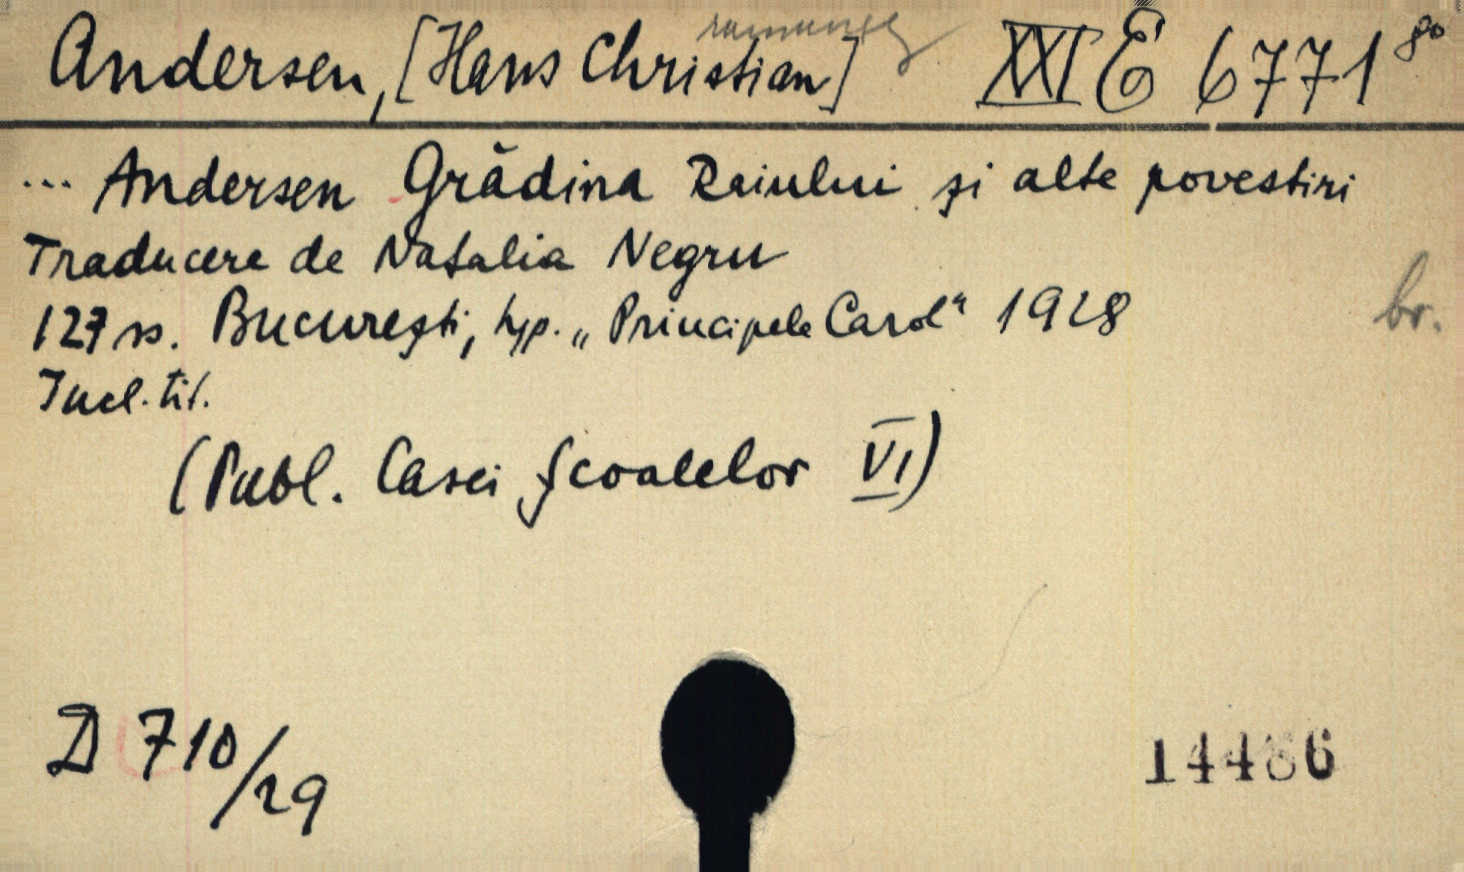 Andersen, [Hans Christian] XXI E 6771 8o
... Andersen Grădina Raiului și alte povestiri
Traducere de Natalia Negru
127 ss. București, typ. „Principele Carol" 1928
br.
Incl. tit.
(Publ. Casei Școalelor VI)
D 710/29
14486